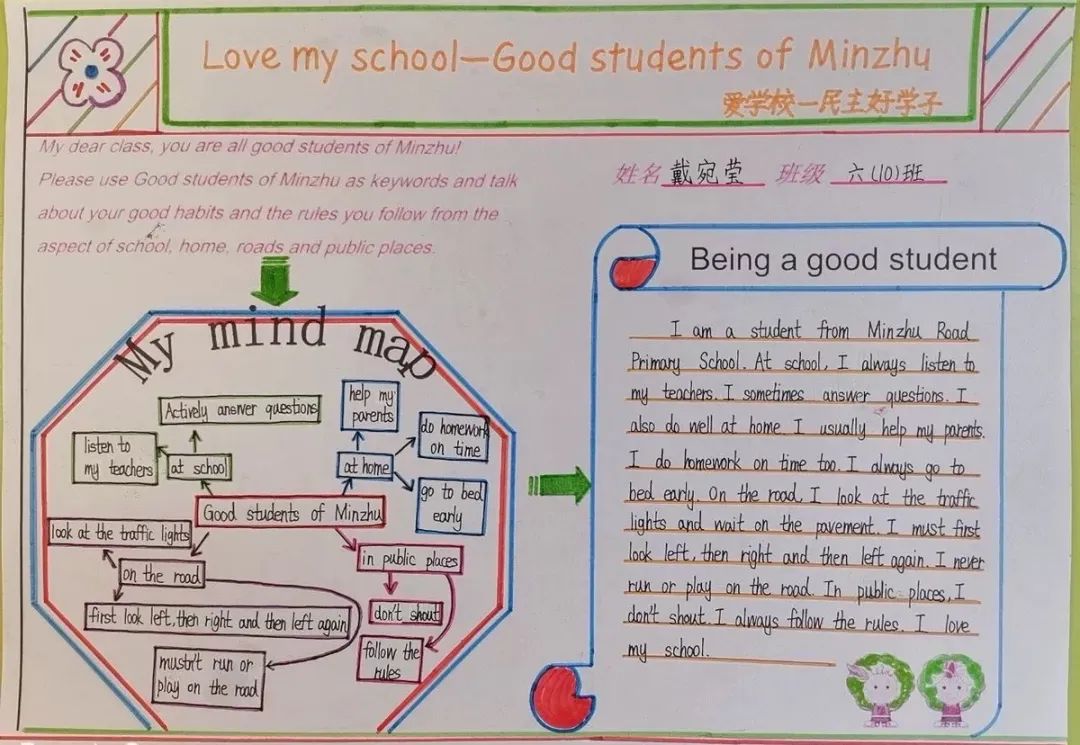 Love my school—Good students of Minzhu
爱学校—民主好学子
My dear class, you are all good students of Minzhu!
Please use Good students of Minzhu as keywords and talk
about your good habits and the rules you follow from the
aspect of school, home, roads and public places.
姓名 戴宛莹 班级 六(10)班
My mind map
Actively answer questions
listen to
my teachers
at school
help my
parents
do homework
on time
at home
go to bed
early
Good students of Minzhu
look at the traffic lights
on the road
first look left, then right and then left again
mustn't run or
play on the road
in public places
don't shout
follow the
rules
Being a good student
I am a student from Minzhu Road
Primary School. At school, I always listen to
my teachers. I sometimes answer questions. I
also do well at home. I usually help my parents.
I do homework on time too. I always go to
bed early. On the road, I look at the traffic
lights and wait on the pavement. I must first
look left, then right and then left again. I never
run or play on the road. In public places, I
don't shout. I always follow the rules. I love
my school.